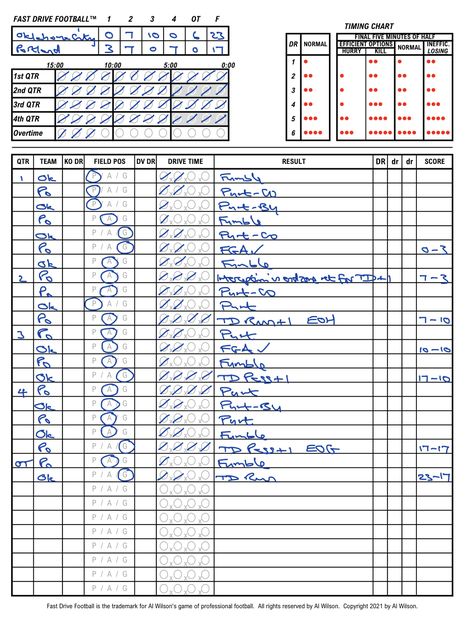 FAST DRIVE FOOTBALL™ 1 2 3 4 OT F
Oklahoma City 0 7 10 0 6 23
Portland 3 7 0 7 0 17
15:00 10:00 5:00 0:00
1st QTR
2nd QTR
3rd QTR
4th QTR
Overtime
TIMING CHART
FINAL FIVE MINUTES OF HALF
DR NORMAL EFFICIENT OPTIONS NORMAL INEFFIC.
HURRY KILL LOSING
1
2
3
4
5
6
QTR TEAM KO DR FIELD POS DV DR DRIVE TIME RESULT DR dr dr SCORE
1 Ok P / A / G Fumble
Po P / A / G Punt-CO
Ok P / A / G Punt-By
Po P / A / G Fumble
Ok P / A / G Punt-CO
Po P / A / G FGA✓ 0-3
Ok P / A / G Fumble
2 Po P / A / G for TD+1 7-3
Po P / A / G Punt-CO
Ok P / A / G Punt
Po P / A / G TD Run+1 EOH 7-10
3 Po P / A / G Punt
Ok P / A / G FGA✓ 10-10
Po P / A / G Fumble
Ok P / A / G TD Pass+1 17-10
4 Po P / A / G Punt
Ok P / A / G Punt-By
Po P / A / G Punt
Ok P / A / G Fumble
Po P / A / G TD Pass+1 EOG 17-17
OT Po P / A / G Fumble
Ok P / A / G TD Run 23-17
P / A / G
P / A / G
P / A / G
P / A / G
P / A / G
P / A / G
P / A / G
P / A / G
Fast Drive Football is the trademark for Al Wilson's game of professional football. All rights reserved by Al Wilson. Copyright 2021 by Al Wilson.